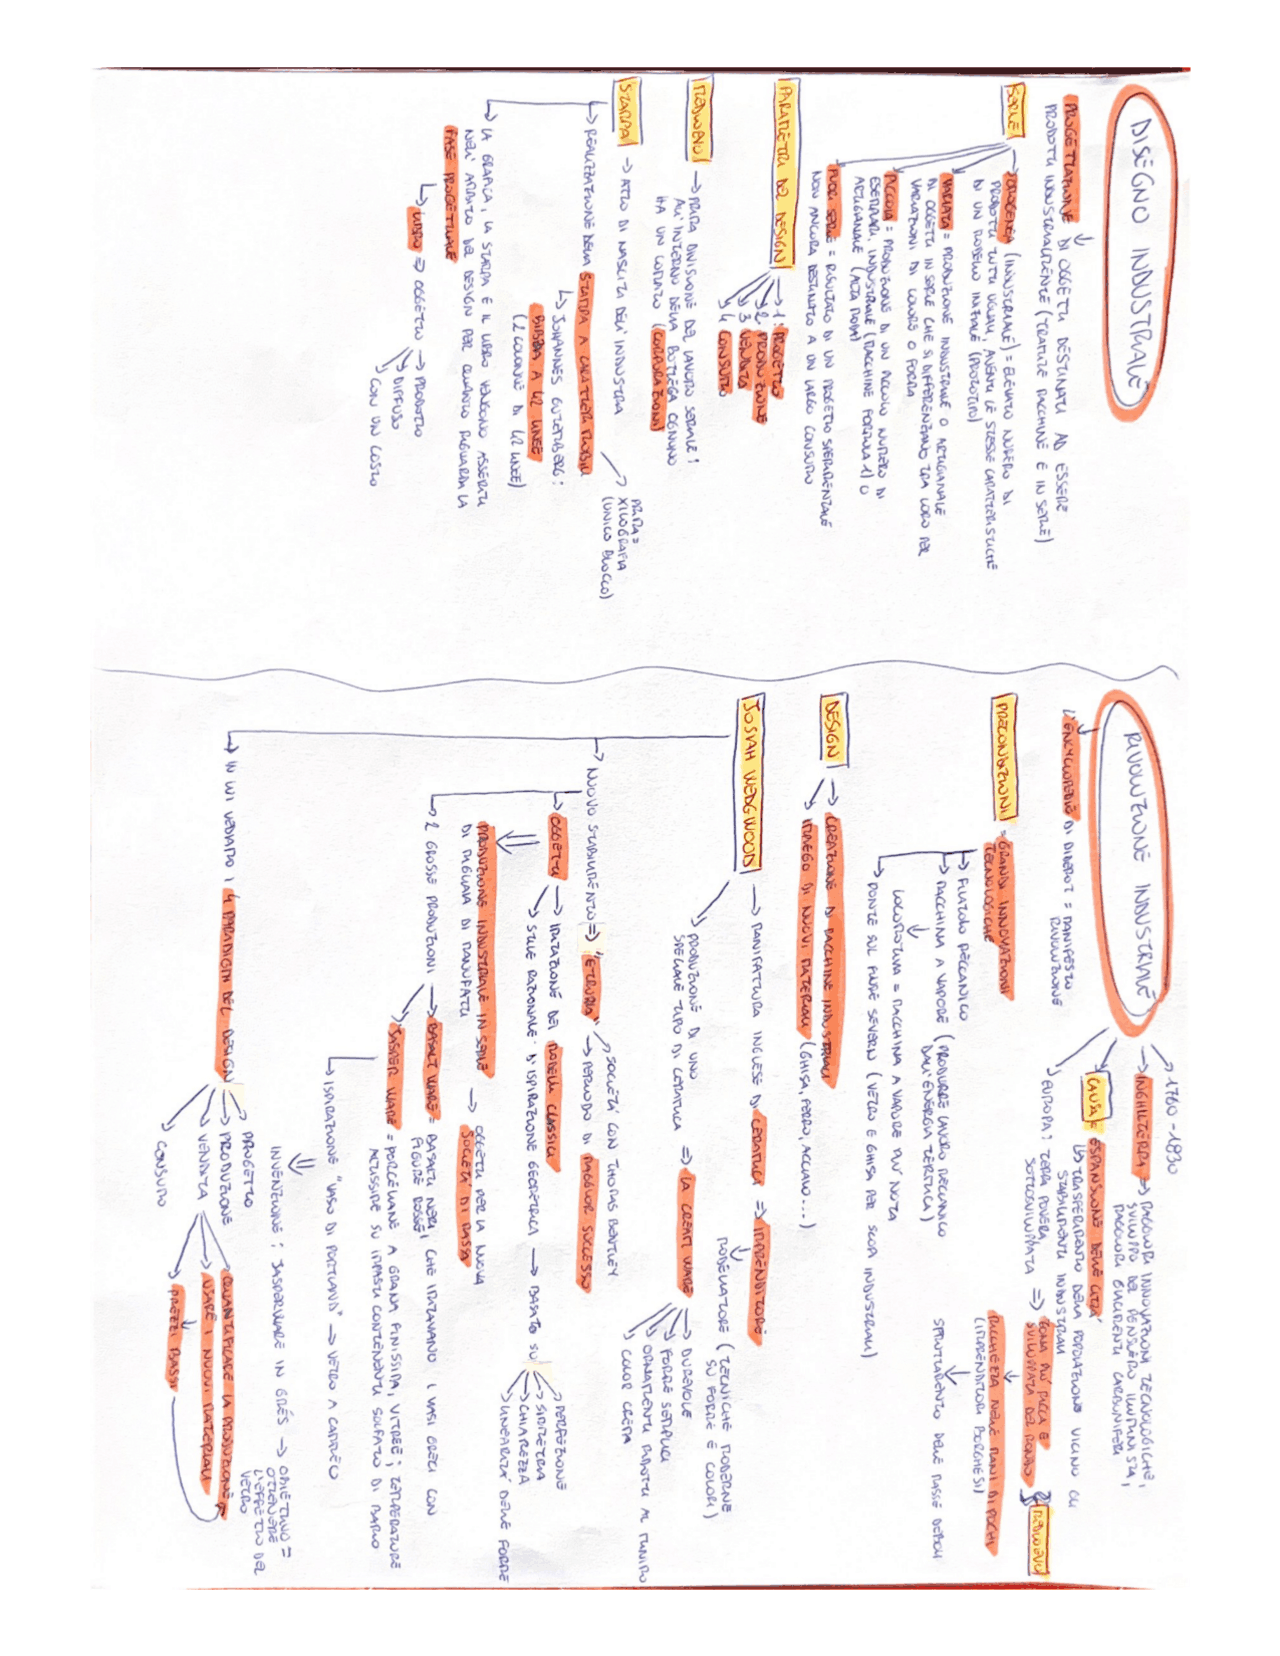 DISEGNO INDUSTRIALE
PROGETTAZIONE DI OGGETTI DESTINATI AD ESSERE
PRODOTTI INDUSTRIALMENTE (TRAMITE MACCHINE E IN SERIE)
SERIE
→ OMOGENEA (INDUSTRIALE) = ELEVATO NUMERO DI
PRODOTTI TUTTI UGUALI, AVENTI LE STESSE CARATTERISTICHE
DI UN MODELLO INIZIALE (PROTOTIPO)
VARIATA = PRODUZIONE INDUSTRIALE O ARTIGIANALE
DI OGGETTI IN SERIE CHE SI DIFFERENZIANO TRA LORO PER
VARIAZIONI DI COLORE O FORMA
PICCOLA = PRODUZIONE DI UN PICCOLO NUMERO DI
ESEMPLARI, INDUSTRIALE (MACCHINE FORMULA 1) O
ARTIGIANALE (ALTA MODA)
FUORI SERIE = RISULTATO DI UN PROGETTO SPERIMENTALE
NON ANCORA DESTINATO A UN LARGO CONSUMO
PARAMETRI DEL DESIGN
→ 1: PROGETTO
→ 2: PRODUZIONE
→ 3 VENDITA
→ 4 CONSUMO
MEDIOEVO → PRIMA DIVISIONE DEL LAVORO SERIALE:
ALL'INTERNO DELLA BOTTEGA OGNUNO
HA UN COMPITO (CORPORAZIONI)
STAMPA → ATTO DI NASCITA DELL'INDUSTRIA
→ REALIZZAZIONE DELLA STAMPA A CARATTERI MOBILI
PRIMA =
XILOGRAFIA
(UNICO BLOCCO)
→ JOHANNES GUTENBERG:
BIBBIA A 42 LINEE
(2 COLONNE DI 42 LINEE)
→ LA GRAFICA, LA STAMPA E IL LIBRO VENGONO ASSERITI
NELL'AMBITO DEL DESIGN PER QUANTO RIGUARDA LA
FASE PROGETTUALE
→ LIBRO => OGGETTO → PRODOTTO
→ DIFFUSO
→ CON UN COSTO
RIVOLUZIONE INDUSTRIALE
→ 1760-1830
→ INGHILTERRA => MAGGIORI INNOVAZIONI TECNOLOGICHE,
SVILUPPO DEL PENSIERO ILLUMINISTA,
MAGGIORI GIACIMENTI CARBONIFERI
CAUSA = ESPANSIONE DELLE CITTÀ
TRASFERIMENTO DELLA POPOLAZIONE VICINO GLI
STABILIMENTI INDUSTRIALI
→ EUROPA: TERRA POVERA,
SOTTOSVILUPPATA => ZONA PIÙ RICCA E
SVILUPPATA DEL MONDO
MEDIOEVO
RICCHEZZA NELLE MANI DI POCHI
(IMPRENDITORI BORGHESI)
SFRUTTAMENTO DELLE MASSE DEBOLI
L'ENCYCLOPEDIE DI DIDEROT = MANIFESTO
RIVOLUZIONE
PRECONDIZIONI = GRANDI INNOVAZIONI
TECNOLOGICHE
→ FILATOIO MECCANICO
→ MACCHINA A VAPORE (PRODURRE LAVORO MECCANICO
DALL'ENERGIA TERMICA)
LOCOMOTIVA = MACCHINA A VAPORE PIÙ NOTA
→ PONTE SUL FIUME SEVERN (VETRO E GHISA PER SCOPI INDUSTRIALI)
DESIGN → CREAZIONE DI MACCHINE INDUSTRIALI
→ IMPIEGO DI NUOVI MATERIALI (GHISA, FERRO, ACCIAIO...)
JOSIAH WEDGWOOD → MANIFATTURA INGLESE DI CERAMICA => IMPRENDITORE
MODELLATORE (TECNICHE MODERNE
SU FORME E COLORI)
→ PRODUZIONE DI UNO
SPECIALE TIPO DI CERAMICA => LA CREAM WARE
→ DUREVOLE
→ FORME SEMPLICI
→ ORNAMENTI RIDOTTI AL MINIMO
→ COLOR CREMA
→ NUOVO STABILIMENTO => "ETRURIA"
→ SOCIETÀ CON THOMAS BENTLEY
→ PERIODO DI MAGGIOR SUCCESSO
→ OGGETTI → IMITAZIONE DEI MODELLI CLASSICI
→ STILE RAZIONALE DI ISPIRAZIONE GEOMETRICA → BASATO SU
→ PERFEZIONE
→ SIMMETRIA
→ CHIAREZZA
→ LINEARITÀ DELLE FORME
PRODUZIONE INDUSTRIALE IN SERIE
DI MIGLIAIA DI MANUFATTI
→ OGGETTI PER LA NUOVA
SOCIETÀ DI MASSA
→ 2 GROSSE PRODUZIONI → BASALT WARE = BASALTI NERI CHE IMITAVANO I VASI GRECI CON
FIGURE ROSSE
→ JASPER WARE = PORCELLANE A GRANA FINISSIMA, VITREE; TEMPERATURE
ALTISSIME SU IMPASTI CONTENENTI SOLFATO DI BARIO
→ ISPIRAZIONE "VASO DI PORTLAND" → VETRO A CAMMEO
→ IN LUI VEDIAMO I 4 PARADIGMI DEL DESIGN
→ PROGETTO
→ PRODUZIONE
→ VENDITA
→ CONSUMO
INVENZIONE: JASPERWARE IN GRÈS → OBIETTIVO =
OTTENERE
L'EFFETTO DEL
VETRO
QUANTIFICARE LA PRODUZIONE
USARE I NUOVI MATERIALI
PREZZI BASSI